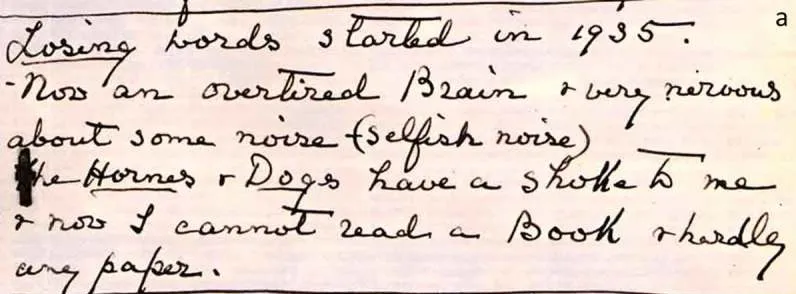 a
Losing words started in 1935.
-Now an overtired Brain & very nervous
about some noise (selfish noise)
the Hornes & Dogs have a shoke to me
& now I cannot read a Book & hardley
any paper.